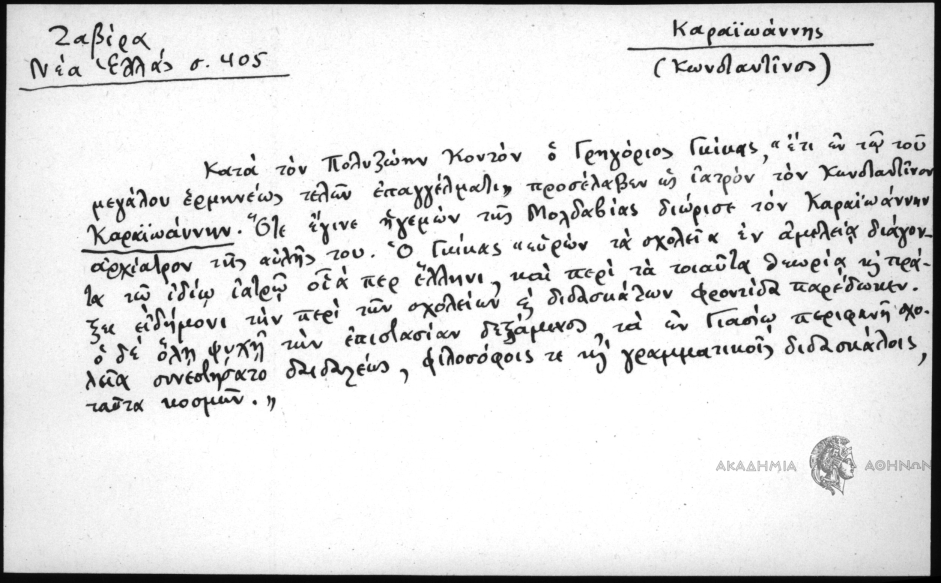 Ζαβίρα
Νέα Ἑλλάς σ. 405
Καραϊωάννης
(Κωνσταντῖνος)
Κατὰ τὸν Πολυζώην Κοντὸν ὁ Γρηγόριος Γκίκας, "ἔτι ἐν τῷ τοῦ
μεγάλου ἑρμηνέως τελῶν ἐπαγγέλματι" προσέλαβεν ὡς ἰατρὸν τὸν Κωνσταντῖνον
Καραϊωάννην. Ὅτε ἔγινε ἡγεμὼν τῆς Μολδαβίας διώρισε τὸν Καραϊωάννην
ἀρχίατρον τῆς αὐλῆς του. Ὁ Γκίκας "εὑρὼν τὰ σχολεῖα ἐν ἀμελείᾳ διάγον-
τα τῷ ἰδίῳ ἰατρῷ οἷά περ ἕλληνι, καὶ περὶ τὰ τοιαῦτα θεωρίᾳ κ̀ πρά-
ξει εἰδήμονι τὴν περὶ τῶν σχολείων κ̀ διδασκάλων φροντίδα παρέδωκεν.
ὁ δὲ ὅλῃ ψυχῇ τὴν ἐπιστασίαν δεξάμενος, τὰ ἐν Γιασίῳ περιφανῆ σχο-
λεῖα συνεστήσατο δαιδαλέως, φιλοσόφοις τε κ̀ γραμματικοῖς διδασκάλοις,
ταῦτα κοσμῶν."
ΑΚΑΔΗΜΙΑ ΑΘΗΝΩΝ